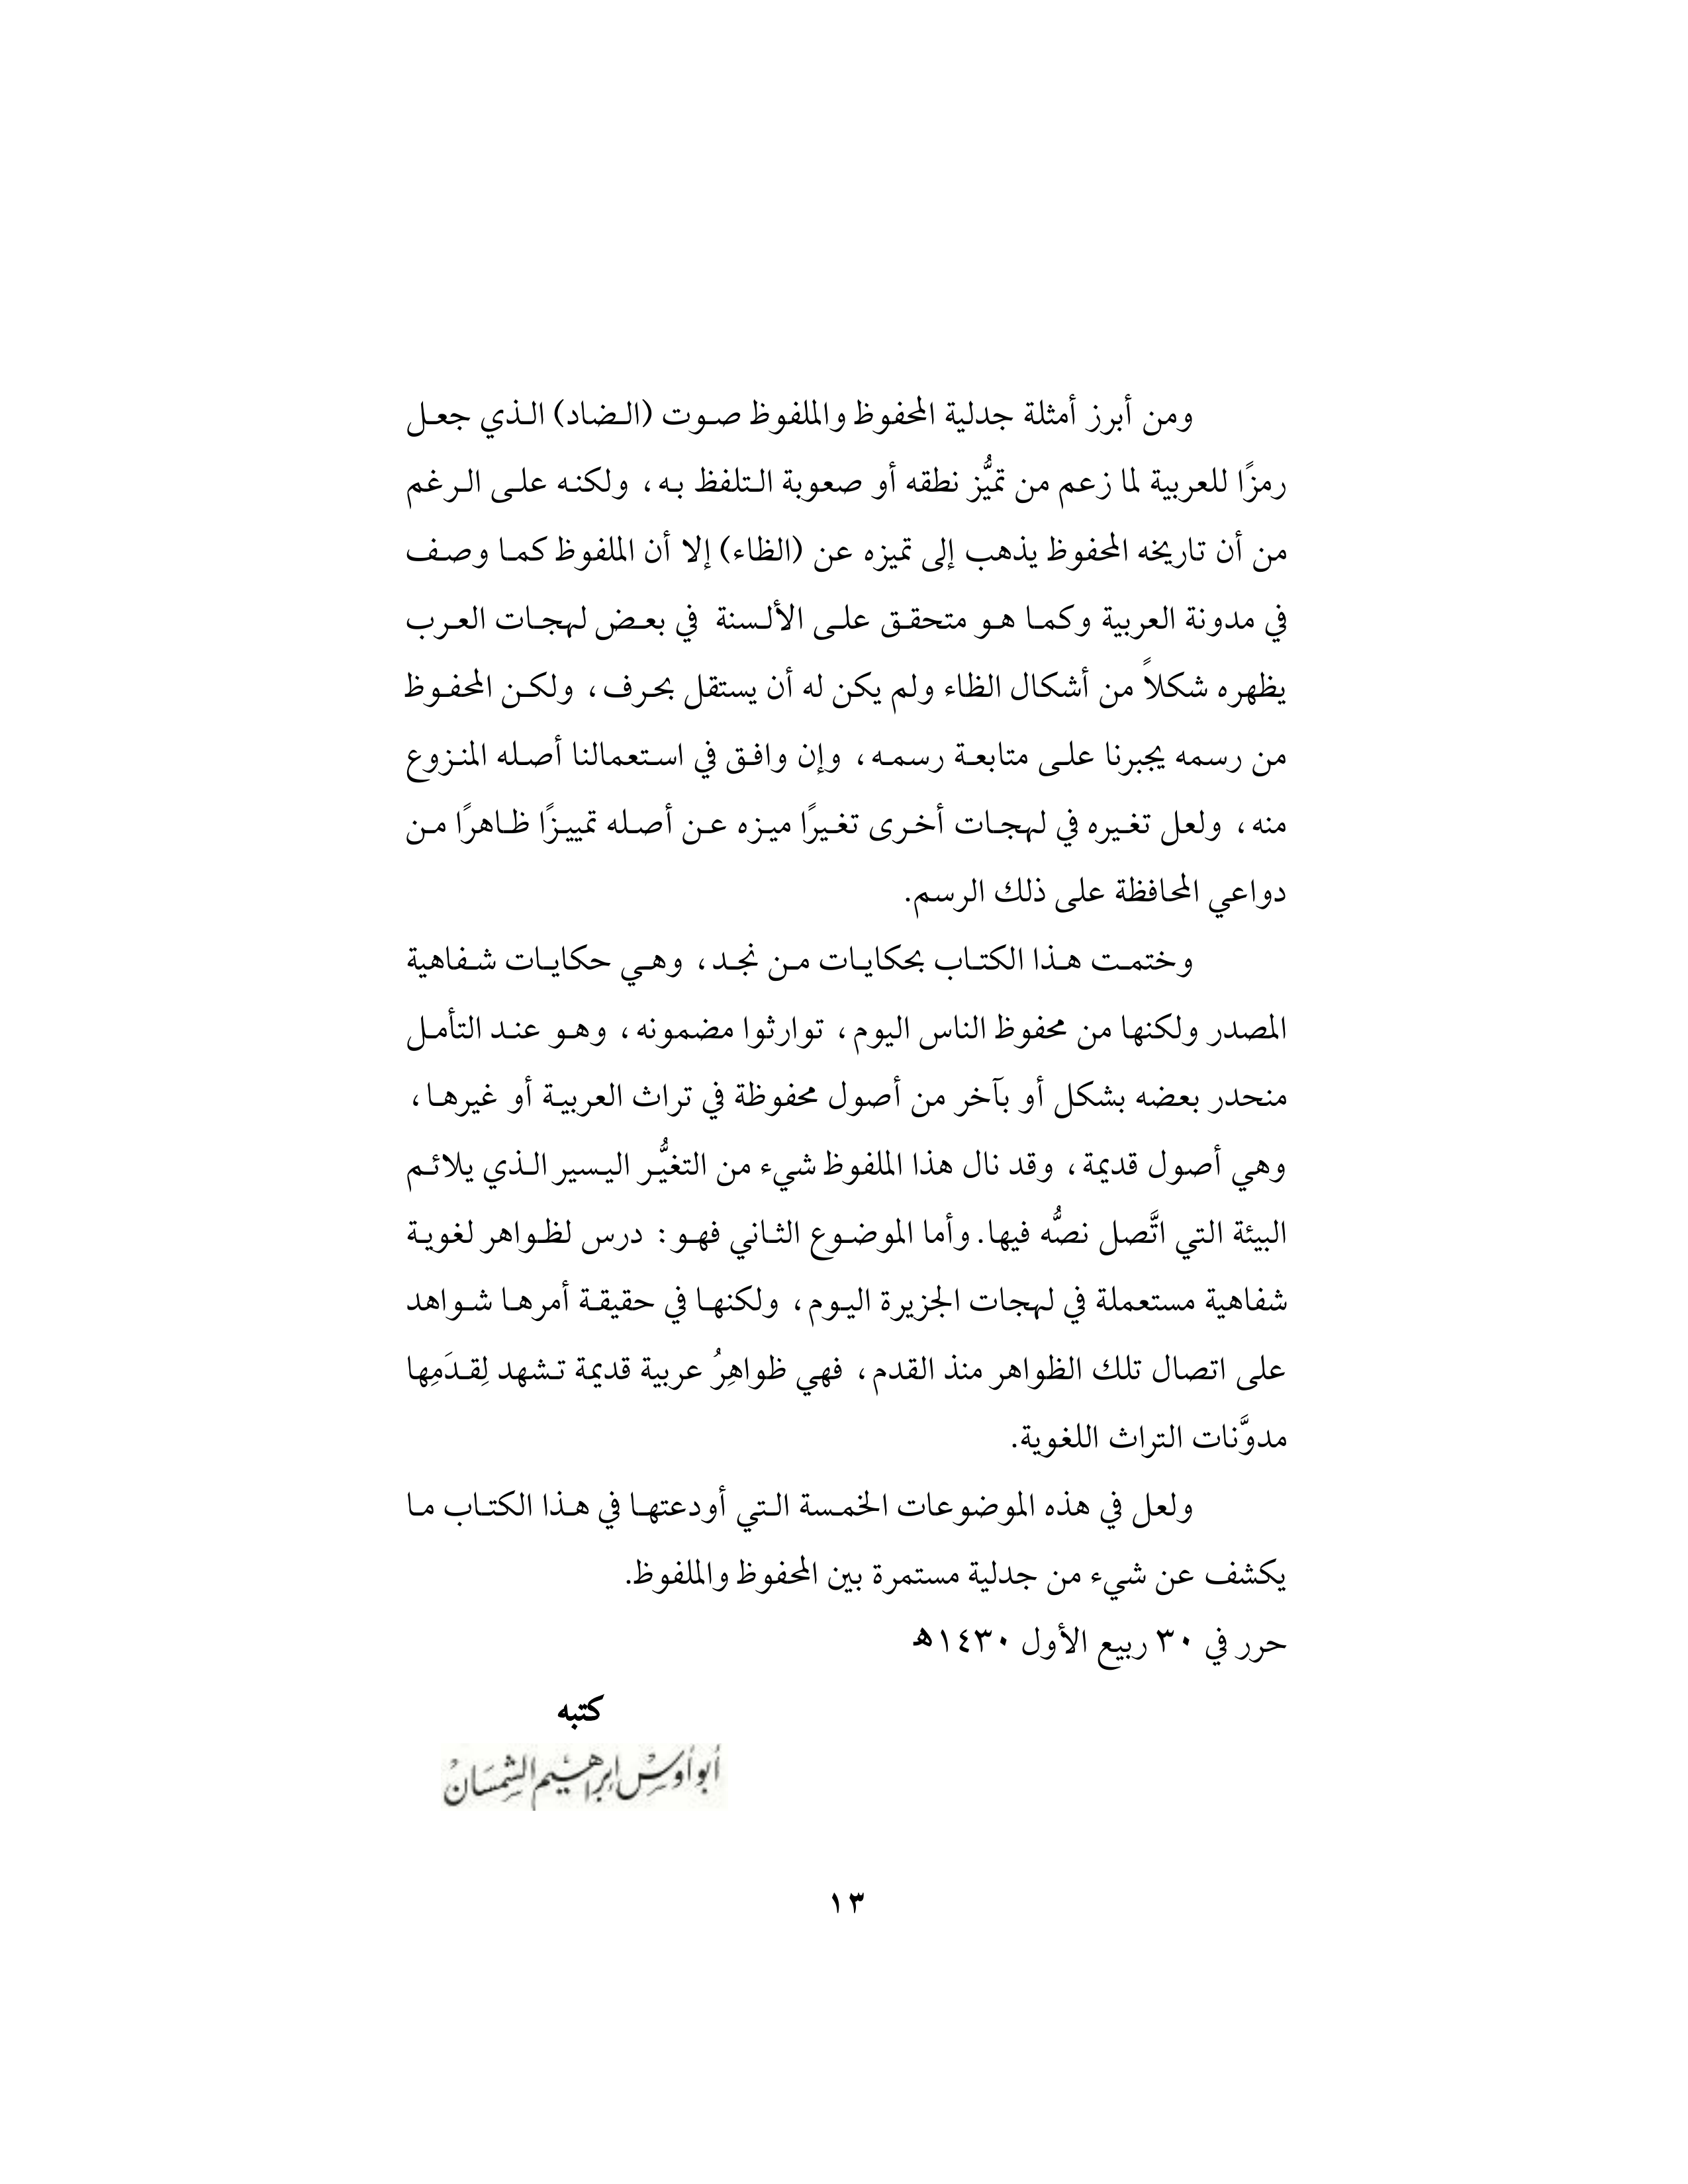 ومن أبرز أمثلة جدلية المحفوظ والملفوظ صوت (الضاد) الذي جعل
رمزًا للعربية لما زعم من تميُّز نطقه أو صعوبة التلفظ به، ولكنه على الرغم
من أن تاريخه المحفوظ يذهب إلى تميزه عن (الظاء) إلا أن الملفوظ كما وصف
في مدونة العربية وكما هو متحقق على الألسنة في بعض لهجات العرب
يظهره شكلاً من أشكال الظاء ولم يكن له أن يستقل بحرف، ولكن المحفوظ
من رسمه يجبرنا على متابعة رسمه، وإن وافق في استعمالنا أصله المنزوع
منه، ولعل تغيره في لهجات أخرى تغيرًا ميزه عن أصله تمييزًا ظاهرًا من
دواعي المحافظة على ذلك الرسم.
وختمت هذا الكتاب بحكايات من نجد، وهي حكايات شفاهية
المصدر ولكنها من محفوظ الناس اليوم، توارثوا مضمونه، وهو عند التأمل
منحدر بعضه بشكل أو بآخر من أصول محفوظة في تراث العربية أو غيرها،
وهي أصول قديمة، وقد نال هذا الملفوظ شيء من التغيُّر اليسير الذي يلائم
البيئة التي اتَّصل نصُّه فيها. وأما الموضوع الثاني فهو: درس لظواهر لغوية
شفاهية مستعملة في لهجات الجزيرة اليوم، ولكنها في حقيقة أمرها شواهد
على اتصال تلك الظواهر منذ القدم، فهي ظواهِرُ عربية قديمة تشهد لِقدَمِها
مدوَّنات التراث اللغوية.
ولعل في هذه الموضوعات الخمسة التي أودعتها في هذا الكتاب ما
يكشف عن شيء من جدلية مستمرة بين المحفوظ والملفوظ.
حرر في ٣٠ ربيع الأول ١٤٣٠هـ
كتبه
أبو أوس إبراهيم الشمسان
١٣